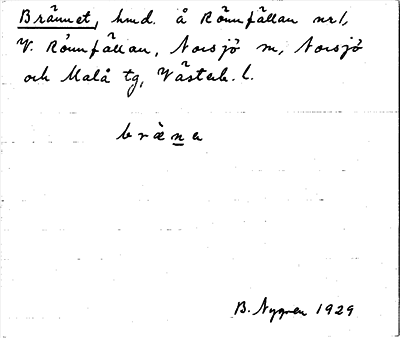 Brännet, hmd. å Rönnfällan nr 1,
V. Rönnfällan, Norsjö sn, Norsjö
och Malå tg, Västerb. l.
brän̲a
B. Nygren 1929